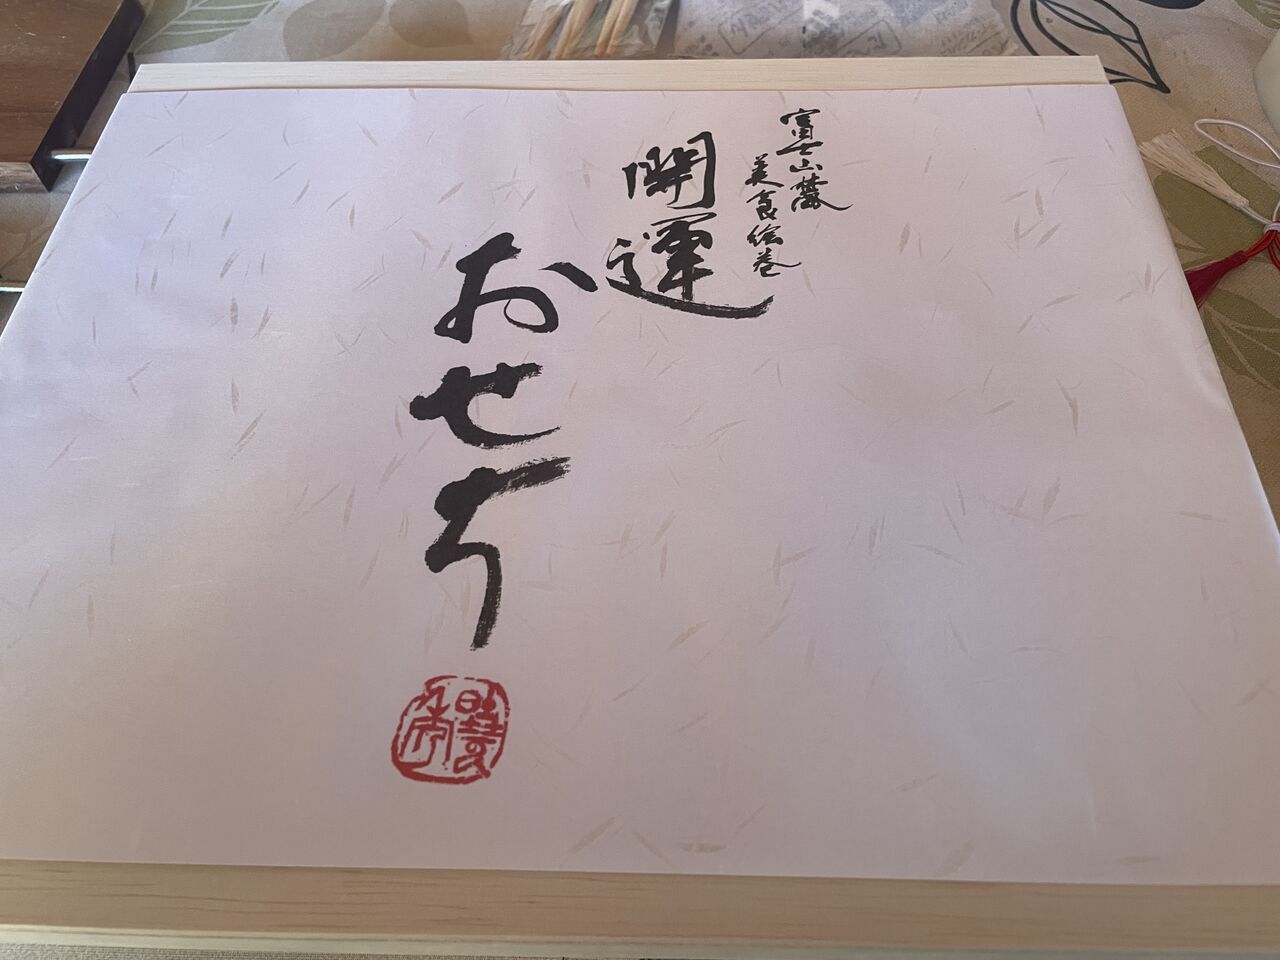 富士山麓
美食絵巻
開運
おせち